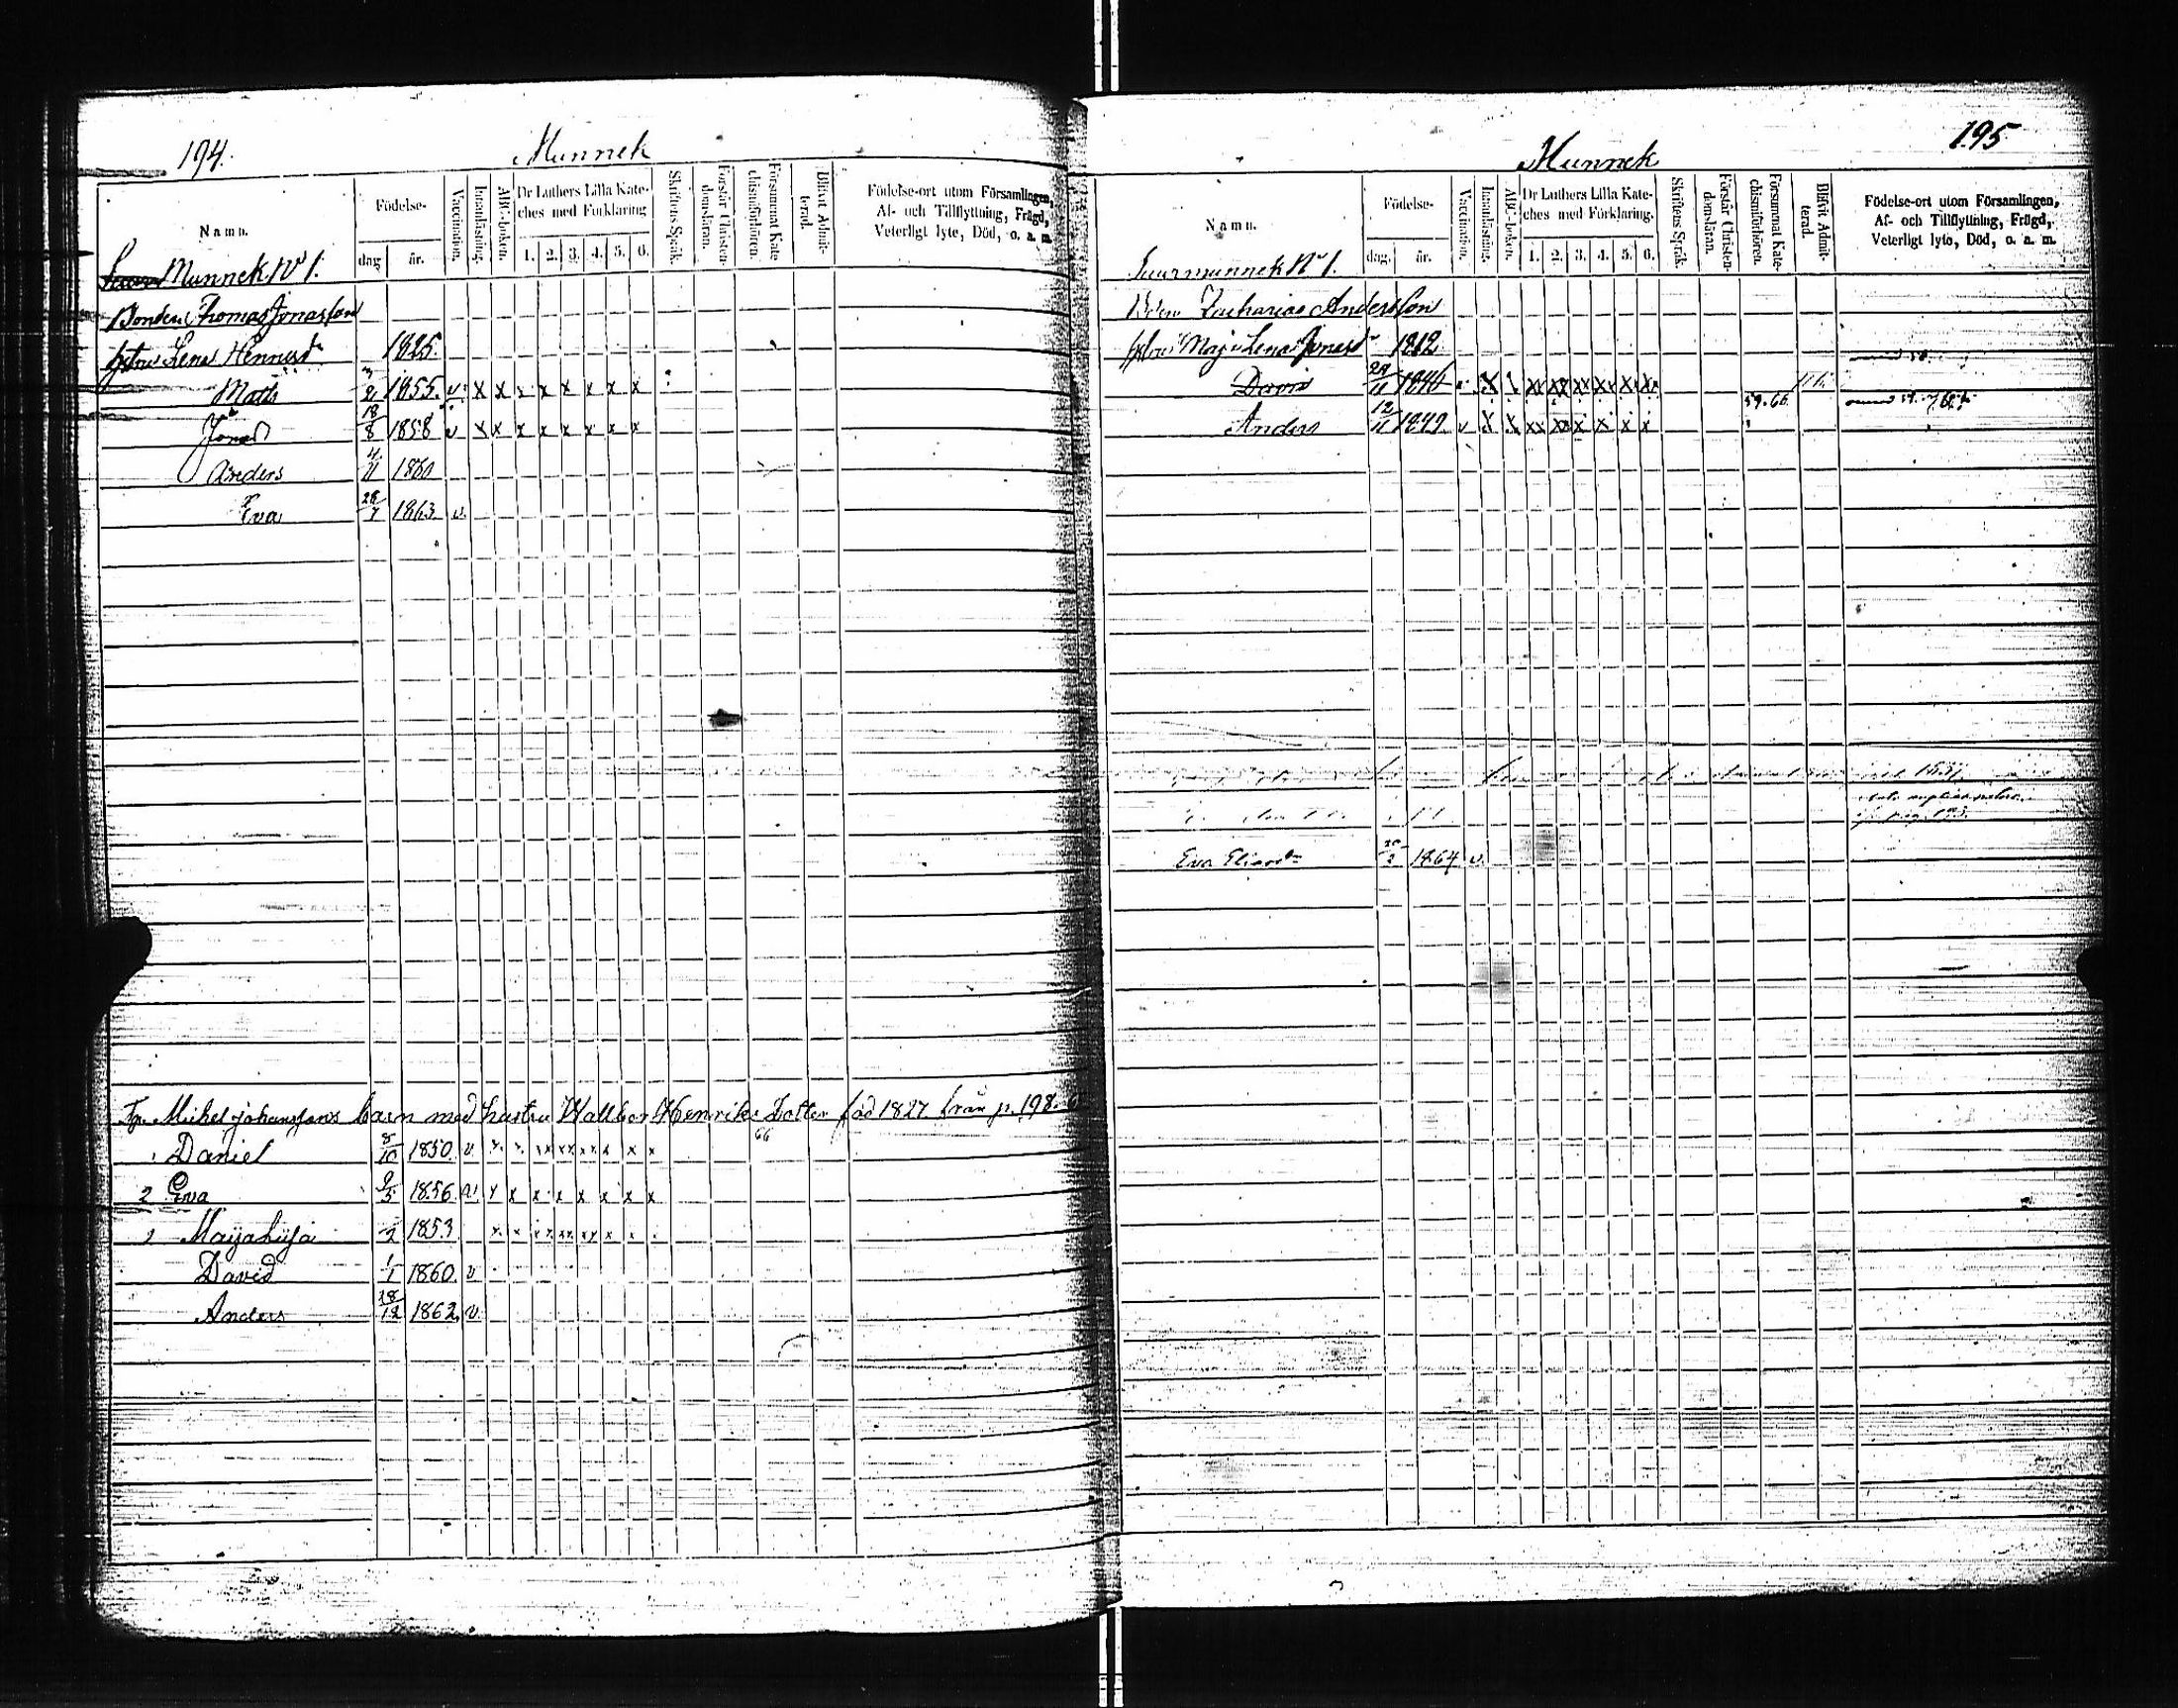 194.
Munnek
Namn.
Födelse-
dag
år.
Vaccination.
Innanläsning.
ABC-boken.
Dr Luthers Lilla Kate-
ches med Förklaring
1. 2. 3. 4. 5. 6.
Skriftens Språk.
Förstår Christen-
domsläran.
Försummat Kate-
chismiförhören.
Blifvit Admit-
terad.
Födelse-ort utom Församlingen,
Af- och Tillflyttning, Frägd,
Veterligt lyte, Död, o. a. m.
Munnek No 1.
Bonden Thomas Jonasson
hstru Lena Henriksd 1825.
Matts 3/2 1855. v. x x x x x x x x
Jonas 18/8 1858 v x x x x x x x x
Anders 4/11 1860
Eva 28/7 1863 v.
Michel Johanssons barn med hustru Wallbor Henriks Dotter född 1827 från p. 198.
66
1 Daniel 8/10 1850 v x x xx xx xx x x x
2 Eva 9/3 1856 v. x x x x x x x x
Maija Lisa 1853 x x xx xx xx x
David 1/1 1860 v
Anders 18/12 1862 v.
195
Munnek
Namn.
Födelse-
dag.
år.
Vaccination.
Innanläsning.
ABC-boken.
Dr Luthers Lilla Kate-
ches med Förklaring.
1. 2. 3. 4. 5. 6.
Skriftens Språk.
Förstår Christen-
domsläran.
Försummat Kate-
chismiförhören.
Blifvit Admit-
terad.
Födelse-ort utom Församlingen,
Af- och Tillflyttning, Frägd,
Veterligt lyto, Död, o. a. m.
Suurmunnek No 1.
Zacharias Andersson
Maja Lena Jonasd 1812
David 1846 x x xx xx xx xx xx xx
59. 66
Anders 12/11 1849 v x x xx xx x x x x
Eva Eliasd 1864 v.